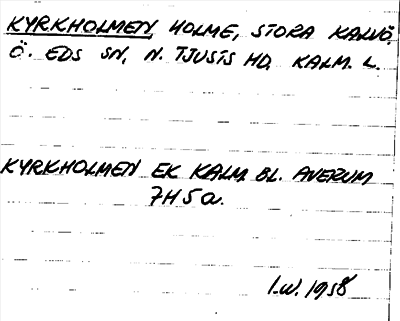 KYRKHOLMEN HOLME, STORA KALVÖ,
Ö. EDS SN, N. TJUSTS HD. KALM. L.
KYRKHOLMEN EK KALM. BL. AVERUM
7H 5a.
I.W. 1958